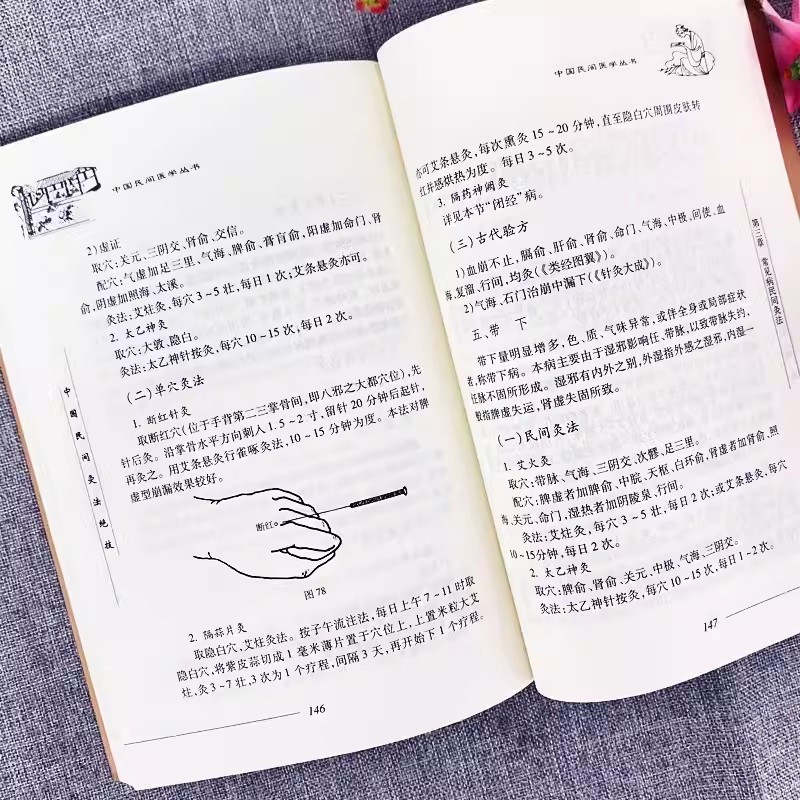 中国民间医学丛书
2)虚证
取穴:关元、三阴交、肾俞、交信。
配穴:气虚加足三里、气海、脾俞、膏肓俞,阳虚加命门、肾
俞,阴虚加照海、太溪。
灸法:艾炷灸,每穴3~5壮,每日1次;艾条悬灸亦可。
2. 太乙神灸
取穴:大敦、隐白。
灸法:太乙神针按灸,每穴10~15次,每日2次。
(二)单穴灸法
1. 断红针灸
取断红穴(位于手背第二三掌骨间,即八邪之大都穴位),先
针后灸。沿掌骨水平方向刺入1.5~2寸,留针20分钟后起针,
再灸之。用艾条悬灸行雀啄灸法,10~15分钟为度。本法对脾
虚型崩漏效果较好。
断红
图78
2. 隔蒜片灸
取隐白穴,艾炷灸法。按子午流注法,每日上午7~11时取
隐白穴,将紫皮蒜切成1毫米薄片置于穴位上,上置米粒大艾
炷,灸3~7壮,3次为1个疗程,间隔3天,再开始下1个疗程。
146
中国民间灸法绝技
中国民间医学丛书
亦可艾条悬灸,每次熏灸15~20分钟,直至隐白穴周围皮肤转
红并感烘热为度。每日3~5次。
3. 隔药神阙灸
详见本节“闭经”病。
(三)古代验方
1)血崩不止,膈俞、肝俞、肾俞、命门、气海、中极、间使、血
海、复溜、行间,均灸(《类经图翼》)。
2)气海、石门治崩中漏下(《针灸大成》)。
五、带 下
带下量明显增多,色、质、气味异常,或伴全身或局部症状
者,称带下病。本病主要由于湿邪影响任、带脉,以致带脉失约,
任脉不固所形成。湿邪有内外之别,外湿指外感之湿邪,内湿一
般指脾虚失运,肾虚失固所致。
(一)民间灸法
1. 艾火灸
取穴:带脉、气海、三阴交、次髎、足三里。
配穴:脾虚者加脾俞、中脘、天枢、白环俞,肾虚者加肾俞、照
海、关元、命门,湿热者加阴陵泉、行间。
灸法:艾炷灸,每穴3~5壮,每日2次;或艾条悬灸,每穴
10~15分钟,每日2次。
2. 太乙神灸
取穴:脾俞、肾俞、关元、中极、气海、三阴交。
灸法:太乙神针按灸,每穴10~15次,每日1~2次。
147
第三章 常见病民间灸法